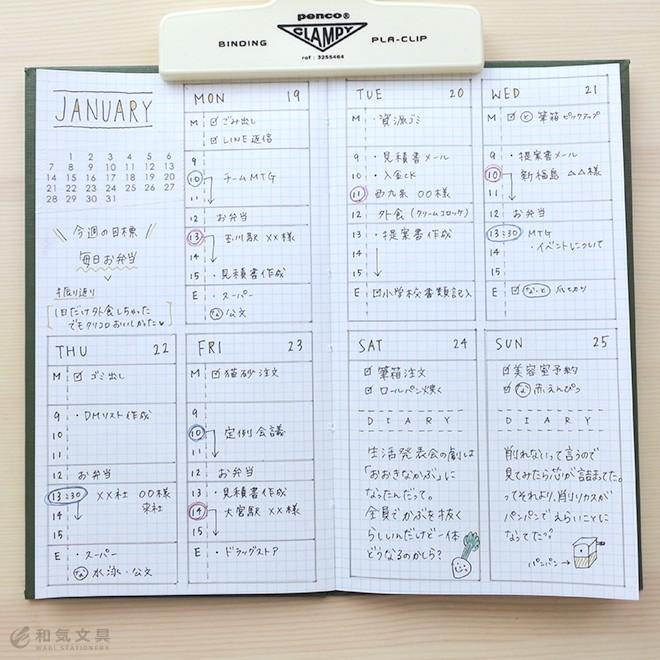 penco®
CLAMPY
BINDING
PLA-CLIP
ref : 3255464
JANUARY
1 2 3 4 5 6
7 8 9 10 11 12 13
14 15 16 17 18 19 20
21 22 23 24 25 26 27
28 29 30 31
今週の目標
毎日お弁当
振り返り
1日だけ外食しちゃった
でもクリコロおいしかった♥
MON 19
M ☑ ごみ出し
☑ LINE返信
9
10 チームMTG
11
12 お弁当
13 玉川駅 ××様
14
15 ・見積書作成
E ・スーパー
な 公文
TUE 20
M ・資源ゴミ
9 ・見積書メール
10 ・入金CK
11 西九条 〇〇様
12 外食(クリームコロッケ)
13 ・提案書作成
14
15
E ☑ 小学校書類記入
WED 21
M ☑ と 筆箱ピックアップ
9 ・提案書メール
10 新福島 △△様
11
12 お弁当
13:30 MTG
14 ・イベントについて
15
E ☑ な・と 爪切り
THU 22
M ☑ ゴミ出し
9 ・DMリスト作成
10
11
12 お弁当
13:30 ××社 〇〇様
14 来社
15
E ・スーパー
な 水泳・公文
FRI 23
M ☑ 猫砂注文
9
10 定例会議
11
12 お弁当
13 ・見積書作成
14 大宮駅 ××様
15
E ・ドラッグストア
SAT 24
☑ 筆箱注文
☑ ロールパン焼く
DIARY
生活発表会の劇は
「おおきなかぶ」に
なったんだって。
全員でかぶを抜く
らしいんだけど一体
どうなるのかしら?
SUN 25
☑ 美容室予約
☑ な 赤えんぴつ
DIARY
削れないって言うので
見てみたら芯が詰まってた。
ってそれより、削りカスが
パンパンでえらいことに
なってた。
パンパン→
和気文具
WAKI STATIONERY